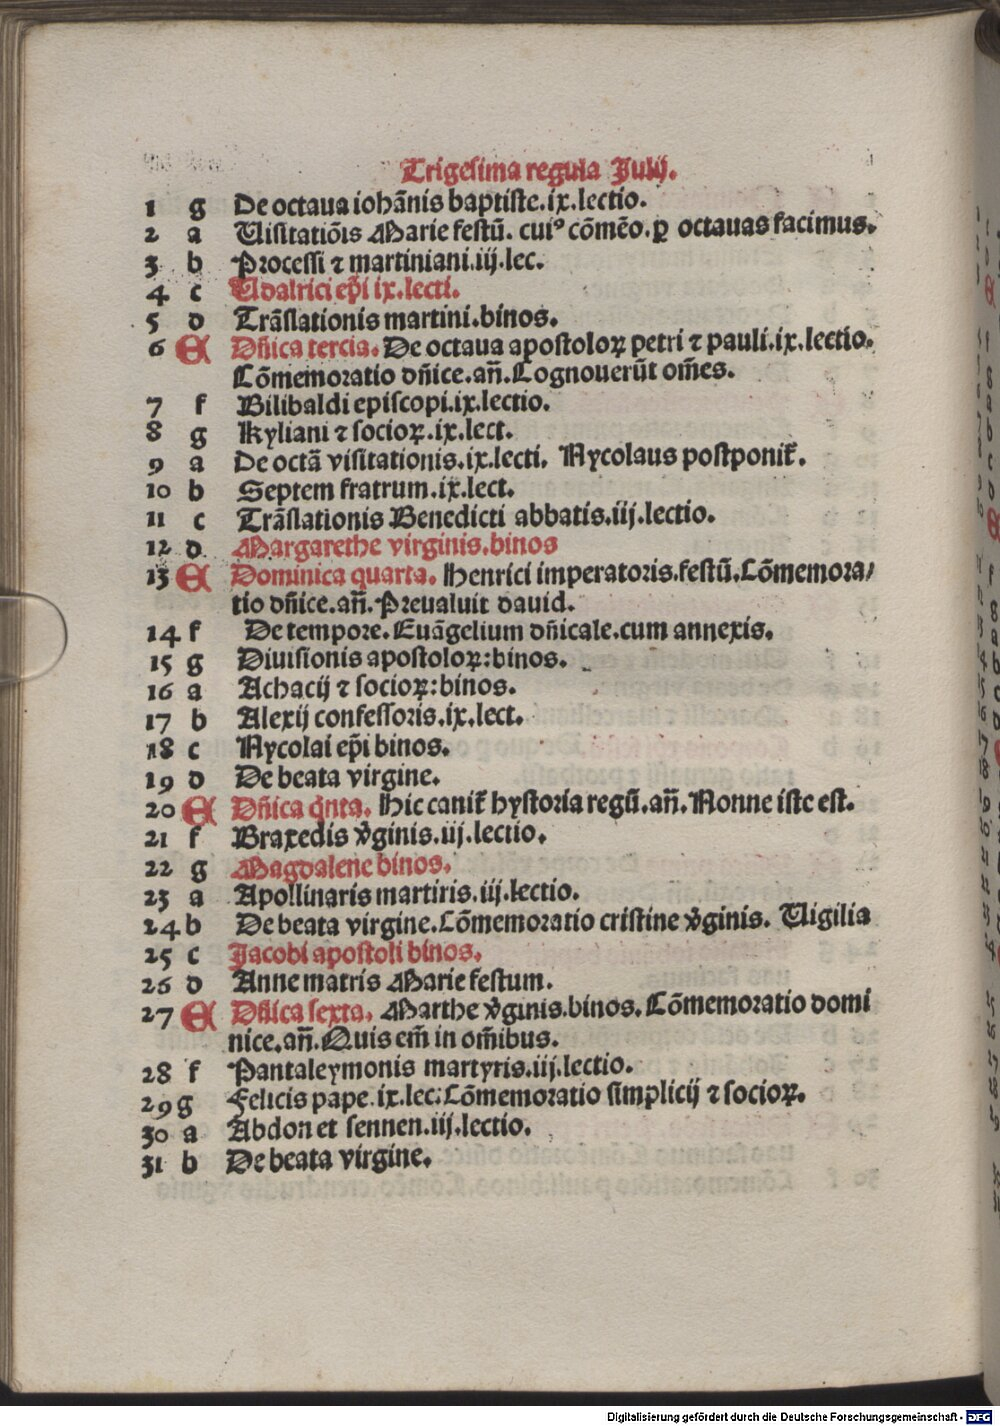 Trigesima regula Julij.
1 g De octaua iohānis baptiste.ix.lectio.
2 a Uisitatiōis Marie festū. cuiꝰ cōmēo.ꝑ octauas facimus.
3 b Processi ⁊ martiniani.iij.lec.
4 c Udalrici ep̄i ix.lecti.
5 d Trāslationis martini.binos.
6 A Dn̄ica tercia. De octaua apostoloꝝ petri ⁊ pauli.ix.lectio.
Cōmemoratio dn̄ice.an̄.Cognouerūt om̄es.
7 f Bilibaldi episcopi.ix.lectio.
8 g Kyliani ⁊ socioꝝ.ix.lect.
9 a De octā visitationis.ix.lecti. Nycolaus postponit̄.
10 b Septem fratrum.ix.lect.
11 c Trāslationis Benedicti abbatis.iij.lectio.
12 d Margarethe virginis.binos
13 A Dominica quarta. Henrici imperatoris.festū.Cōmemora/
tio dn̄ice.an̄.Preualuit dauid.
14 f De tempore.Euāgelium dn̄icale.cum annexis.
15 g Diuisionis apostoloꝝ:binos.
16 a Achacij ⁊ socioꝝ:binos.
17 b Alexij confessoris.ix.lect.
18 c Nycolai ep̄i binos.
19 d De beata virgine.
20 A Dn̄ica q̇nta. Hic canit̄ hystoria regū.an̄.Nonne iste est.
21 f Braxedis v̓ginis.iij.lectio.
22 g Magdalene binos.
23 a Apollinaris martiris.iij.lectio.
24 b De beata virgine.Cōmemoratio cristine v̓ginis. Uigilia
25 c Jacobi apostoli binos.
26 d Anne matris Marie festum.
27 A Dn̄ica sexta. Marthe v̓ginis.binos.Cōmemoratio domi
nice.an̄.Quis em̄ in om̄ibus.
28 f Pantaleymonis martyris.iij.lectio.
29 g Felicis pape.ix.lec:Cōmemoratio simplicij ⁊ socioꝝ.
30 a Abdon et sennen.iij.lectio.
31 b De beata virgine.
Digitalisierung gefördert durch die Deutsche Forschungsgemeinschaft - DFG